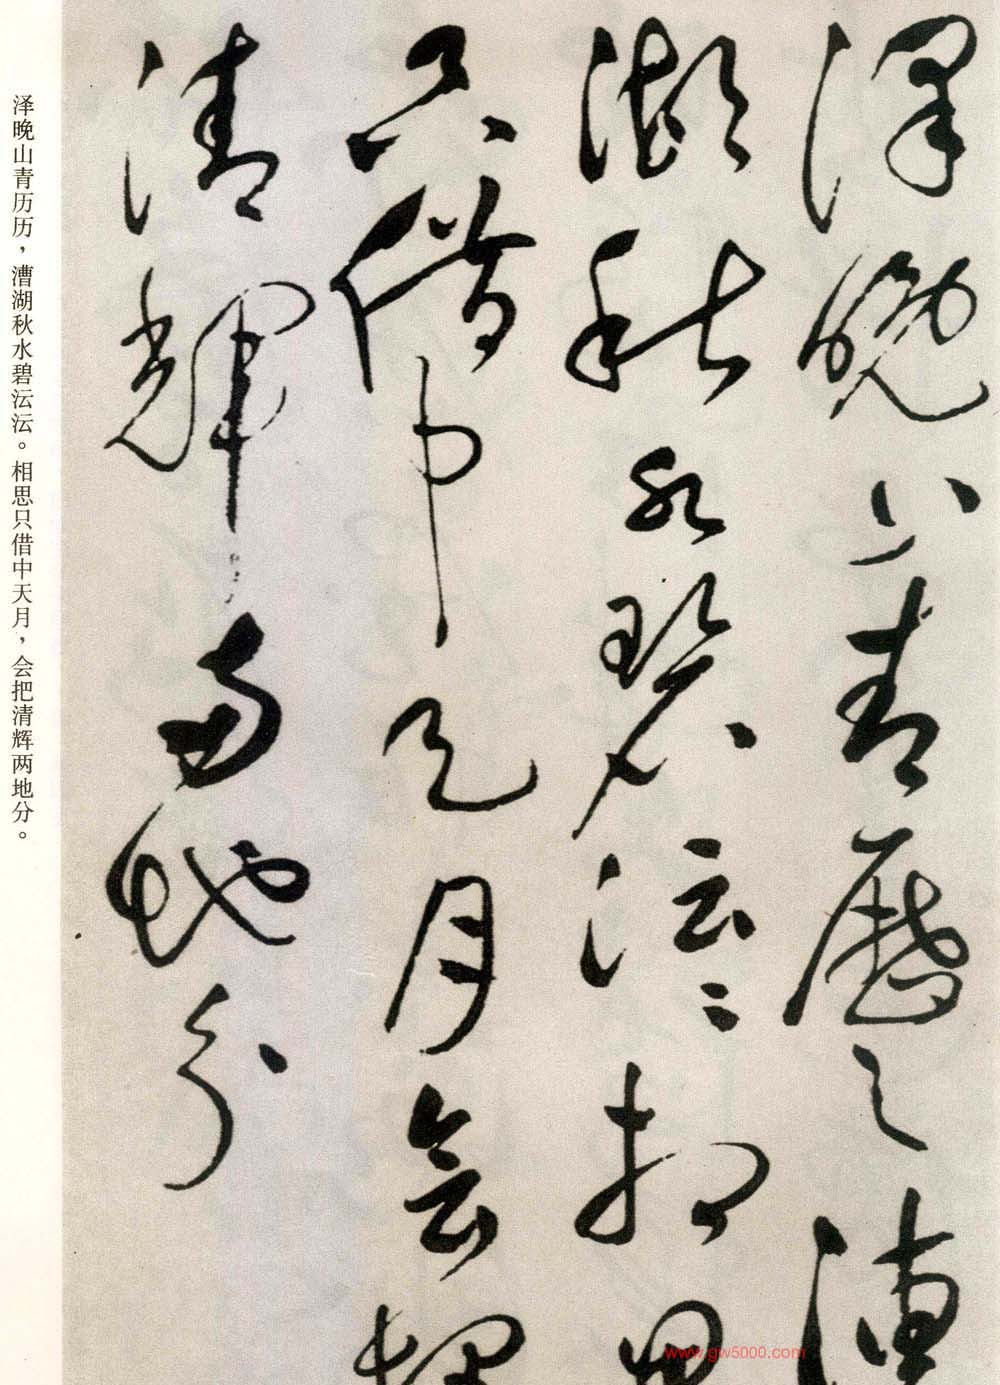 澤晚山青歷〻漕
湖秋水碧沄〻相思
只借中天月會把
清輝兩地分
泽晚山青历历，漕湖秋水碧沄沄。相思只借中天月，会把清辉两地分。
www.gw5000.com